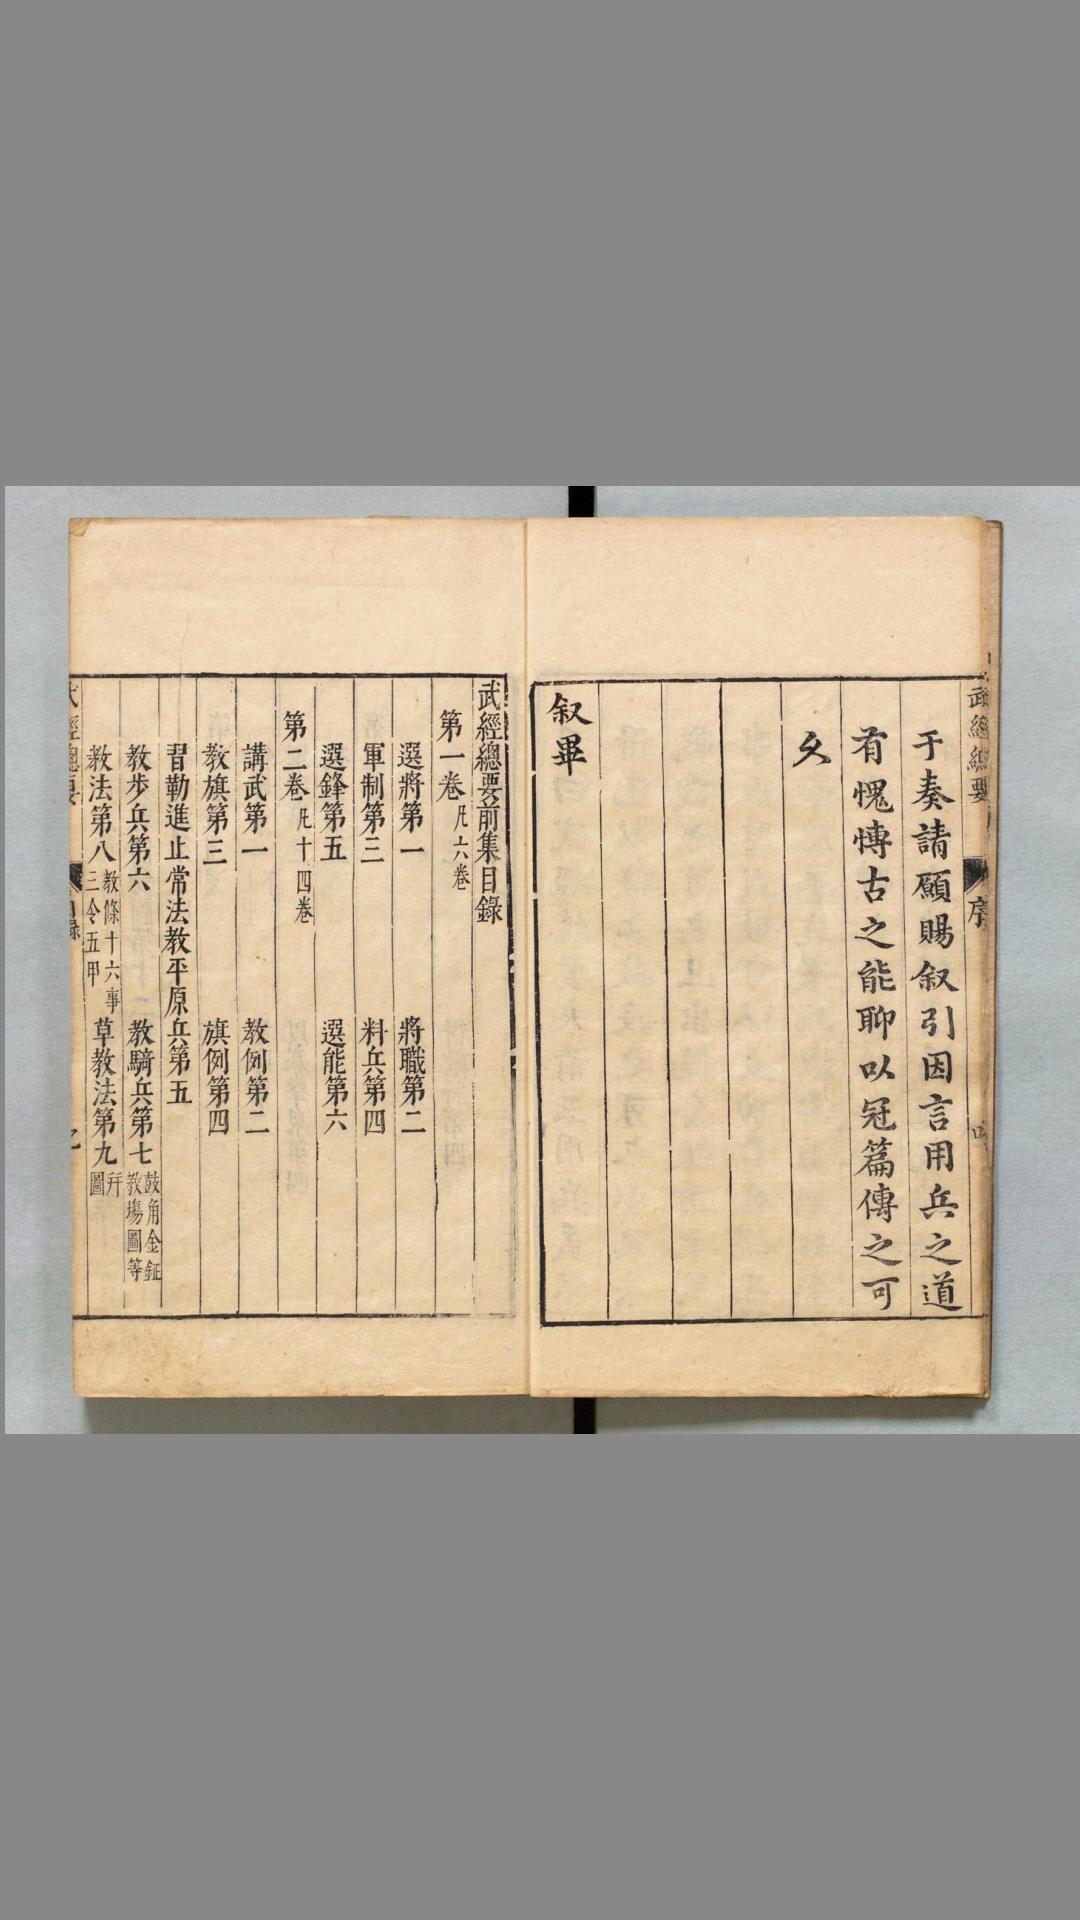 武經總要
序
于奏請願賜叙引因言用兵之道
有愧愽古之能聊以冠篇傳之可
久
叙畢
武經總要前集目錄
第一卷 凡六卷
選將第一 將職第二
軍制第三 料兵第四
選鋒第五 選能第六
第二卷 凡十四卷
講武第一 教例第二
教旗第三 旗例第四
習勒進止常法教平原兵第五
教步兵第六 教騎兵第七 鼓角金鉦教塲圖等
教法第八 教條十六事三令五甲 草教法第九 幷圖
經總要
目錄